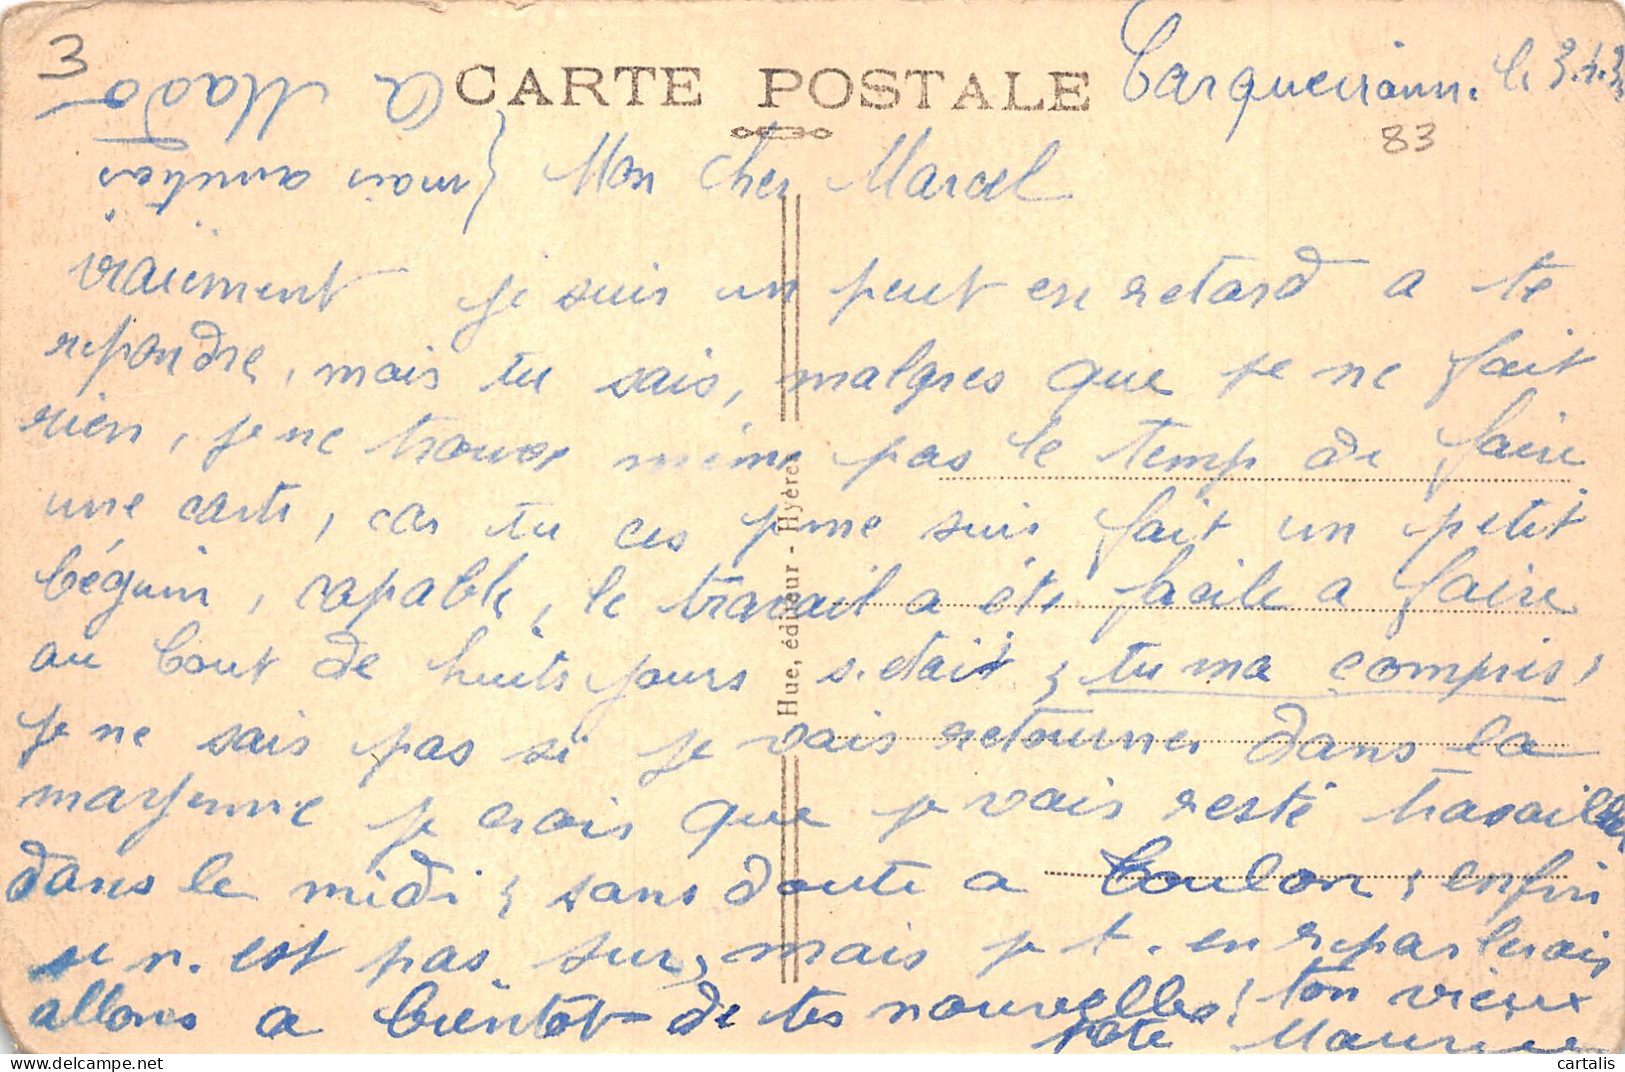 3
CARTE POSTALE
Carqueiranne. le 3.4.3
83
a Mado
mais amitiés
Mon cher Marcel
vraiement je suis un peut en retard a te
repondre, mais tu sais, malgres que je ne fait
rien, je ne trouve même pas le temp de faire
une carte, car tu ces je me suis fait un petit
béguin, capable, le travail a été facile a faire
au bout de huits jours s.etait ; tu ma compris,
je ne sais pas si je vais retourner dans la
mayenne je crois que je vais resté travailler
dans le midi ; sans doute a Toulon ; enfin
se n.est pas sur, mais je t.en reparlerais
allons a bientôt de tes nouvelles! ton vieux
pote Maurice
Hue, éditeur - Hyères
cartalis